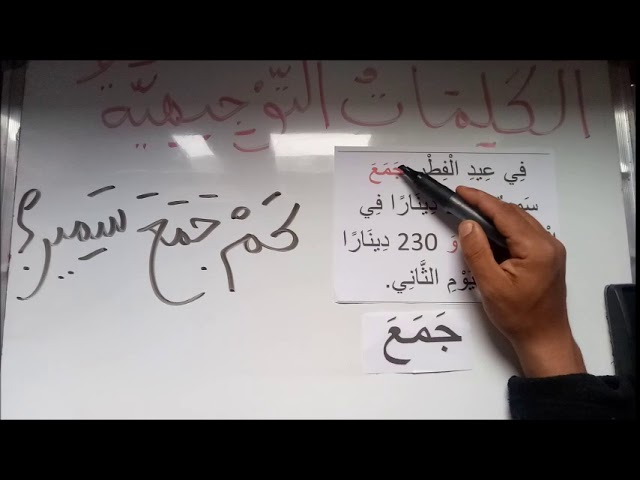 الكَلِمَاتُ التَّوْجِيهِيَّةُ
فِي عِيدِ الْفِطْرِ جَمَعَ
دِينَارًا فِي
وَ 230 دِينَارًا
الثَّانِي.
كَمْ جَمَعَ سَمِير؟
جَمَعَ